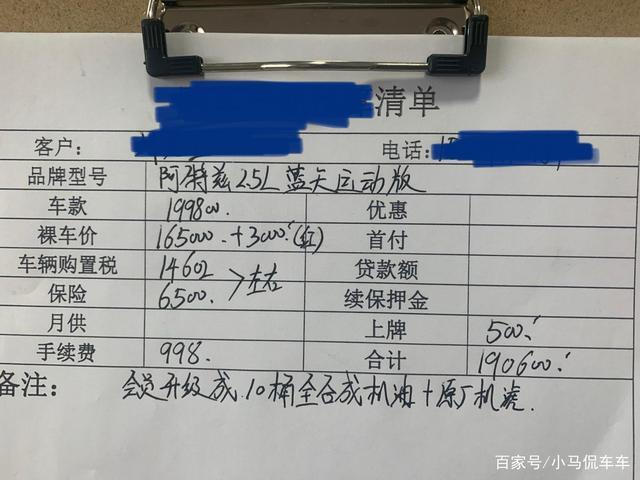 清单
客户： 电话：
品牌型号 阿特兹2.5L 蓝天运动版
车款 199800. 优惠
裸车价 165000. +3000.(红) 首付
车辆购置税 14602 >左右 贷款额
保险 6500. 续保押金
月供 上牌 500.
手续费 998. 合计 190600.
备注： 会员升级成10桶全合成机油+原厂机滤.
百家号/小马侃车车